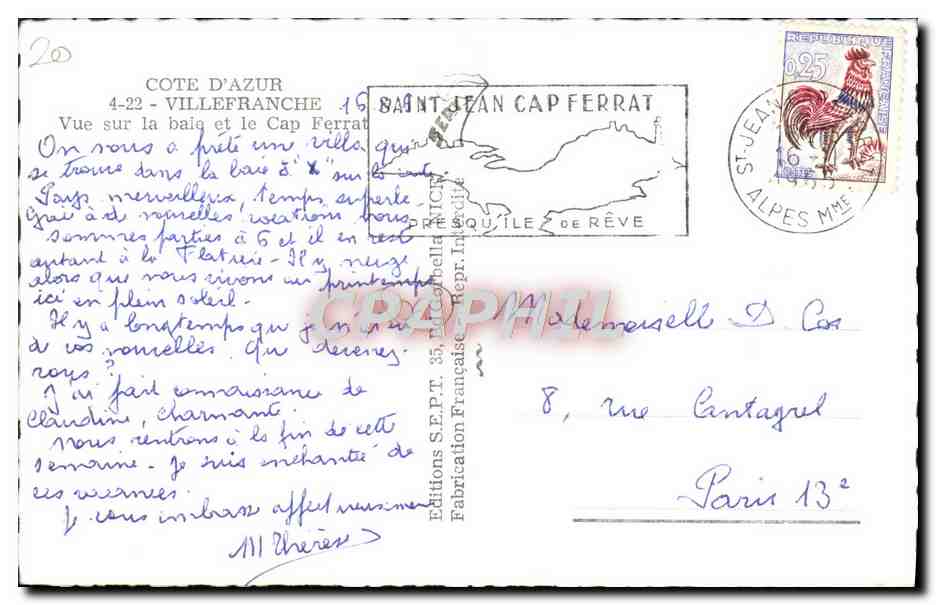 20
COTE D'AZUR
4-22 - VILLEFRANCHE
Vue sur la baie et le Cap Ferrat
SAINT JEAN CAP FERRAT
PRESQU'ÎLE DE RÊVE
REPUBLIQUE FRANÇAISE
0,25
ST JEAN
16
ALPES MME
On nous a prêté une villa qui
se trouve dans la baie à "x" sur la carte
Pays merveilleux, temps superbe.
nouvelles vous
sommes parties à 6 et il en rest
autant à la Flatière - Il y neige
alors que nous vivons un printemps
ici en plein soleil.
Il y a longtemps que je n'ai eu
de vos nouvelles. Que devenez-
vous ?
J'ai fait connaissance de
Claudine, charmante.
Nous rentrons à la fin de cette
semaine - Je suis enchantée de
ces vacances.
Je vous embrasse affectueusement
M Thérèse
Editions S.E.P.T. 35, NICE
Fabrication Française Repr. Interdite
CPAPHIL
Mademoiselle D Cos
8, rue Cantagrel
Paris 13e